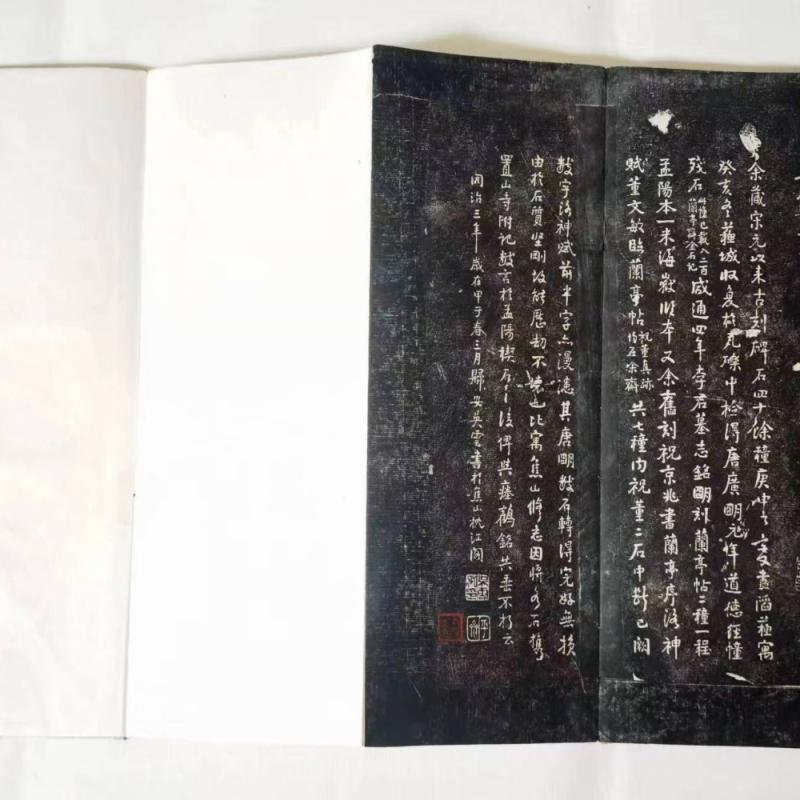 余藏宋元以来古刻碑石四十馀種庚申之變盡酒蘓寓
癸亥冬蘓城收复於瓦礫中檢得唐廣明元年道德經幢
残石 幢已載入二百蘭亭齋金石記 咸通四年李君墓志銘明刻蘭亭帖二種一程
孟陽本一米海嶽臨本又余舊刻祝京兆書蘭亭序洛神
賦董文敏臨蘭亭帖 祝董真跡均在余齋 共七種内祝董二石中斷已闕
數字洛神賦前半字亦漫漶其唐明數石轉得完好無損
由於石質坚剛故能歷劫不燒也比寓焦山修志因將各石
置山寺附記數言於孟陽禊序之後俾與瘗鶴銘共垂不朽云
同治三年歲在甲子春三月歸安吴雲書於焦山枕江閣